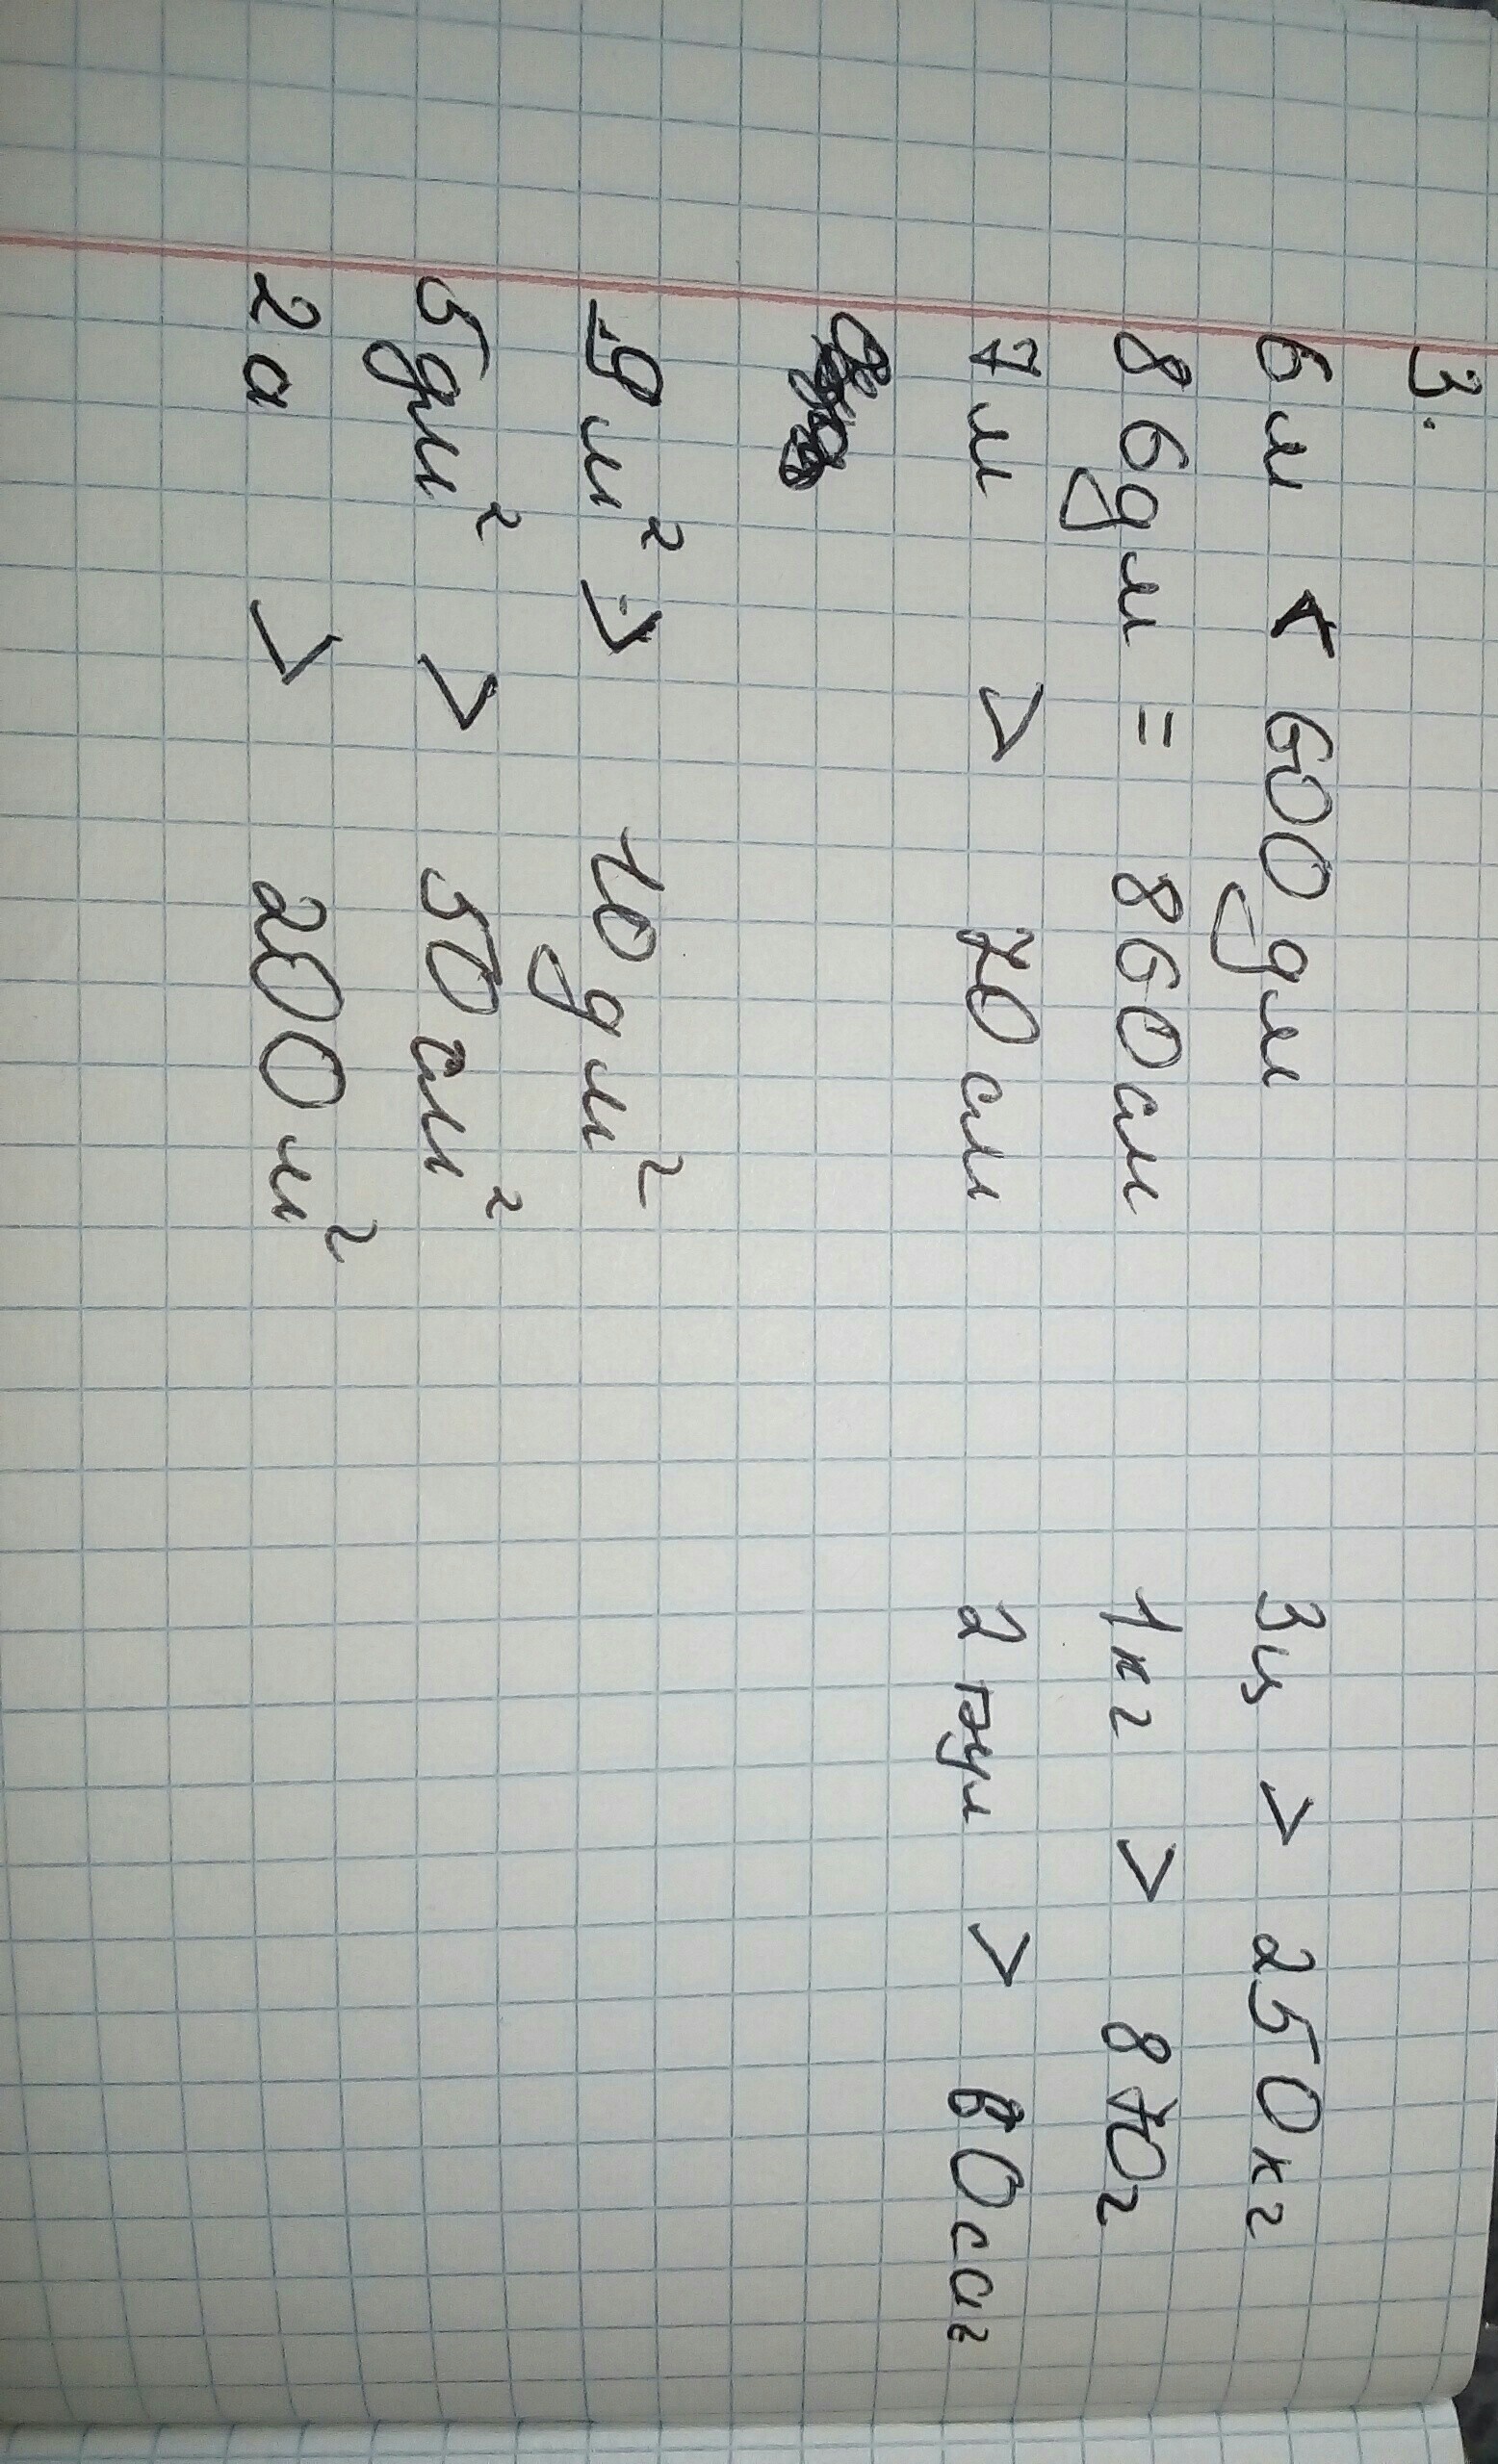 3.
6м < 600дм 3ц > 250кг
86дм = 860см 1кг > 870г
7м > 70см 2тәул > сағ
9м² > 10дм²
5дм² > 50см²
2а > 200м²